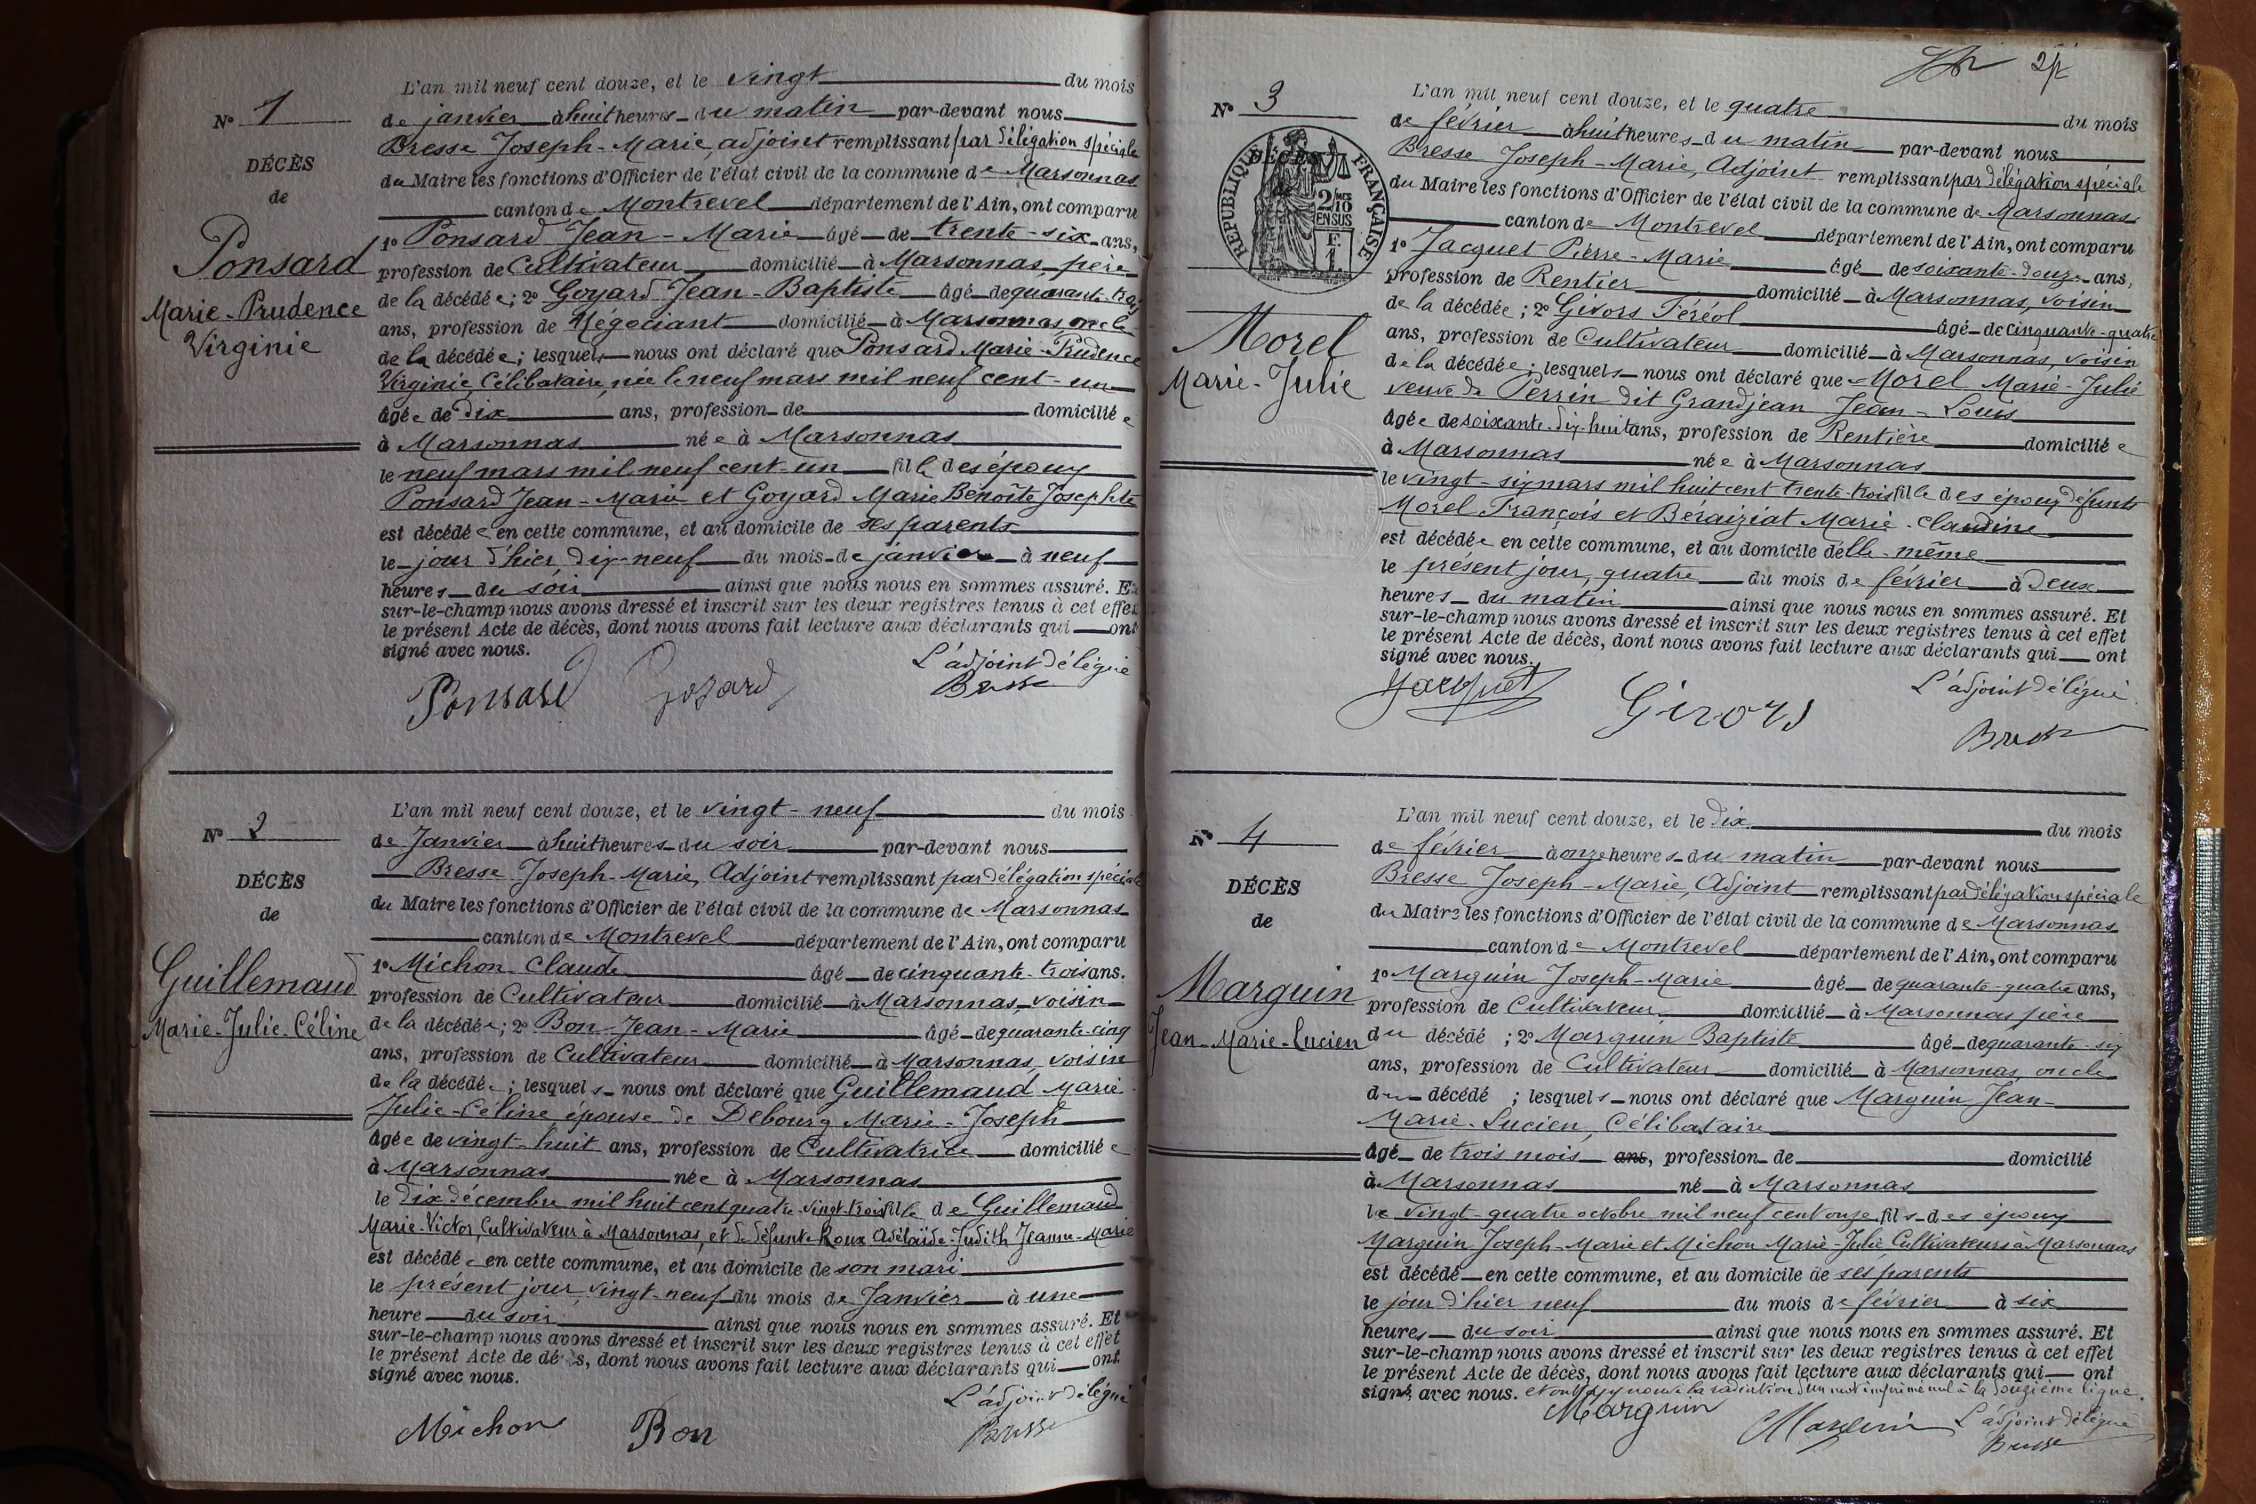 N° 1
DÉCÈS
de
Ponsard
Marie-Prudence
Virginie
L'an mil neuf cent douze, et le vingt du mois
de janvier à huit heures du matin par-devant nous
Bresse Joseph-Marie, adjoint remplissant par délégation spéciale
du Maire les fonctions d'Officier de l'état civil de la commune de Marsonnas
canton de Montrevel département de l'Ain, ont comparu
1° Ponsard Jean-Marie âgé de trente-six ans,
profession de Cultivateur domicilié à Marsonnas, père
de la décédée; 2° Goyard Jean-Baptiste âgé de quarante-trois
ans, profession de Négociant domicilié à Marsonnas, oncle
de la décédée; lesquels nous ont déclaré que Ponsard Marie-Prudence
Virginie, Célibataire, née le neuf mars mil neuf cent-un
âgée de dix ans, profession de domiciliée
à Marsonnas née à Marsonnas
le neuf mars mil neuf cent-un fille des époux
Ponsard Jean-Marie et Goyard Marie Benoîte Josephte
est décédée en cette commune, et au domicile de ses parents
le jour d'hier dix-neuf du mois de janvier à neuf
heures du soir ainsi que nous nous en sommes assuré. Et
sur-le-champ nous avons dressé et inscrit sur les deux registres tenus à cet effet
le présent Acte de décès, dont nous avons fait lecture aux déclarants qui ont
signé avec nous.
L'adjoint délégué
Ponsard Goyard Bresse
N° 2
DÉCÈS
de
Guillemaud
Marie-Julie-Céline
L'an mil neuf cent douze, et le vingt-neuf du mois
de Janvier à huit heures du soir par-devant nous
Bresse Joseph-Marie, Adjoint remplissant par délégation spéciale
du Maire les fonctions d'Officier de l'état civil de la commune de Marsonnas
canton de Montrevel département de l'Ain, ont comparu
1° Michon Claude âgé de cinquante-trois ans.
profession de Cultivateur domicilié à Marsonnas, voisin
de la décédée; 2° Bon Jean-Marie âgé de quarante-cinq
ans, profession de Cultivateur domicilié à Marsonnas, voisin
de la décédée; lesquels nous ont déclaré que Guillemaud Marie
Julie-Céline épouse de Debourg Marie-Joseph
âgée de vingt-huit ans, profession de Cultivatrice domiciliée
à Marsonnas née à Marsonnas
le dix décembre mil huit cent quatre-vingt-trois fille de Guillemaud
Marie-Victor, Cultivateur à Marsonnas, et de défunte Roux Adélaïde-Judith Jeanne-Marie
est décédée en cette commune, et au domicile de son mari
le présent jour, vingt-neuf du mois de Janvier à une
heure du soir ainsi que nous nous en sommes assuré. Et
sur-le-champ nous avons dressé et inscrit sur les deux registres tenus à cet effet
le présent Acte de décès, dont nous avons fait lecture aux déclarants qui ont
signé avec nous.
L'adjoint délégué
Michon Bon Bresse
2
N° 3
DÉCÈS
RÉPUBLIQUE FRANÇAISE
2/10
EN SUS
F.
1.
Morel
Marie-Julie
L'an mil neuf cent douze, et le quatre du mois
de février à huit heures du matin par-devant nous
Bresse Joseph-Marie, Adjoint remplissant par délégation spéciale
du Maire les fonctions d'Officier de l'état civil de la commune de Marsonnas
canton de Montrevel département de l'Ain, ont comparu
1° Jacquet Pierre-Marie âgé de soixante-douze ans,
profession de Rentier domicilié à Marsonnas, voisin
de la décédée; 2° Givors Féréol âgé de cinquante-quatre
ans, profession de Cultivateur domicilié à Marsonnas, voisin
de la décédée; lesquels nous ont déclaré que Morel Marie-Julie
veuve de Perrin dit Grandjean Jean-Louis
âgée de soixante-dix-huit ans, profession de Rentière domiciliée
à Marsonnas née à Marsonnas
le vingt-six mars mil huit cent trente-trois fille des époux défunts
Morel François et Beraiziat Marie-Claudine
est décédée en cette commune, et au domicile d'elle-même
le présent jour, quatre du mois de février à deux
heures du matin ainsi que nous nous en sommes assuré. Et
sur-le-champ nous avons dressé et inscrit sur les deux registres tenus à cet effet
le présent Acte de décès, dont nous avons fait lecture aux déclarants qui ont
signé avec nous.
L'adjoint délégué
Jacquet Givors Bresse
N° 4
DÉCÈS
de
Marguin
Jean-Marie-Lucien
L'an mil neuf cent douze, et le dix du mois
de février à onze heures du matin par-devant nous
Bresse Joseph-Marie, Adjoint remplissant par délégation spéciale
du Maire les fonctions d'Officier de l'état civil de la commune de Marsonnas
canton de Montrevel département de l'Ain, ont comparu
1° Marguin Joseph-Marie âgé de quarante-quatre ans,
profession de Cultivateur domicilié à Marsonnas père
du décédé ; 2° Marguin Baptiste âgé de quarante-six
ans, profession de Cultivateur domicilié à Marsonnas, oncle
du décédé ; lesquels nous ont déclaré que Marguin Jean-
Marie-Lucien, Célibataire
âgé de trois mois ans, profession de domicilié
à Marsonnas né à Marsonnas
le vingt-quatre octobre mil neuf cent onze, fils des époux
Marguin Joseph-Marie et Michon Marie-Julie, Cultivateurs à Marsonnas
est décédé en cette commune, et au domicile de ses parents
le jour d'hier neuf du mois de février à six
heures du soir ainsi que nous nous en sommes assuré. Et
sur-le-champ nous avons dressé et inscrit sur les deux registres tenus à cet effet
le présent Acte de décès, dont nous avons fait lecture aux déclarants qui ont
signé avec nous. et ont approuvé la radiation d'un mot imprimé nul à la douzième ligne.
Marguin Marguin L'adjoint délégué
Bresse